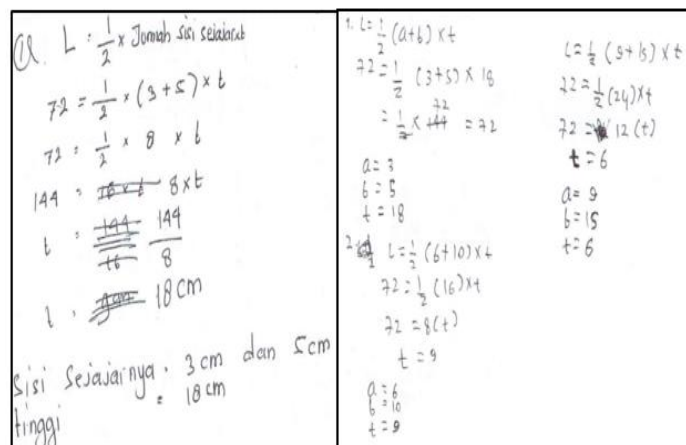 1. L = 1/2 × Jumlah sisi sejajar
72 = 1/2 × (3+5) × t
72 = 1/2 × 8 × t
144 = 8×t
t = 144/8
t = 18 cm
Sisi sejajarnya = 3 cm dan 5 cm
tinggi = 18 cm
1. L = 1/2 (a+b) × t
72 = 1/2 (3+5) × 18
= 1/2 × 144 72 = 72
a = 3
b = 5
t = 18
2. L = 1/2 (6+10) × t
72 = 1/2 (16) × t
72 = 8(t)
t = 9
a = 6
b = 10
t = 9
L = 1/2 (9+15) × t
72 = 1/2 (24) × t
72 = 12 (t)
t = 6
a = 9
b = 15
t = 6